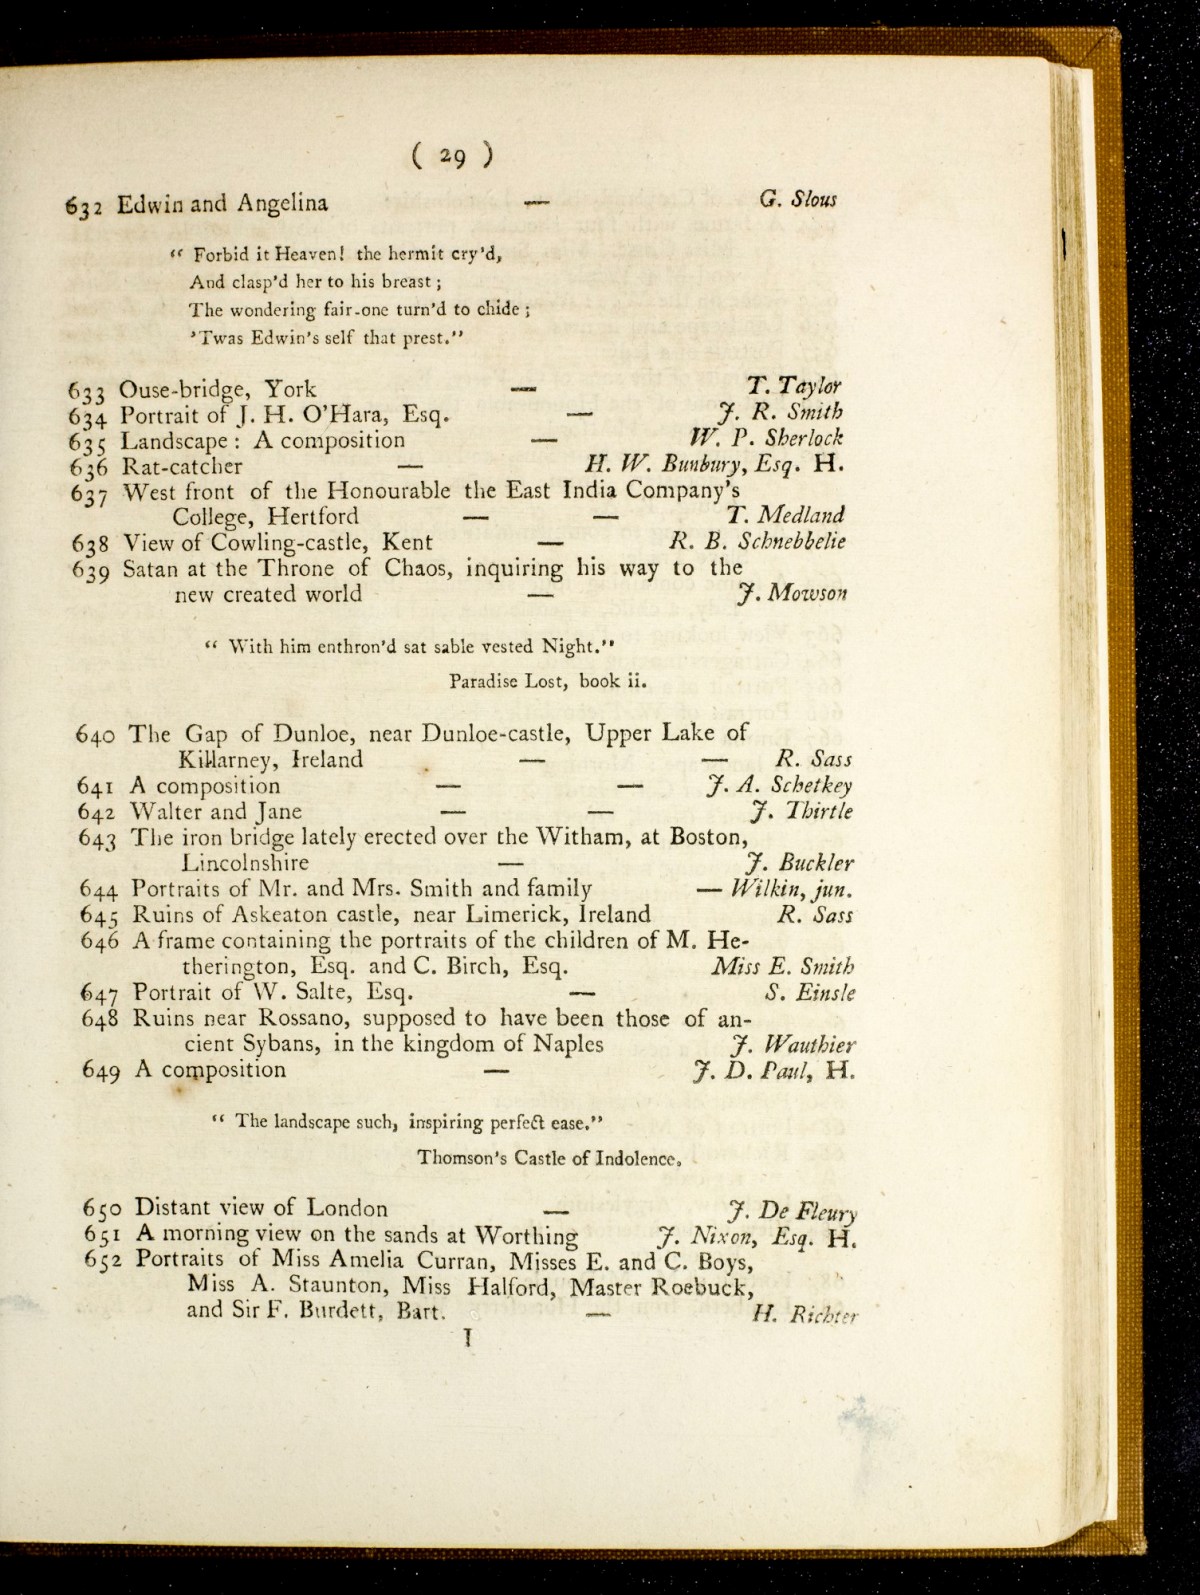 ( 29 )
632 Edwin and Angelina — G. Slous
“ Forbid it Heaven! the hermit cry'd,
And clasp'd her to his breast;
The wondering fair-one turn'd to chide;
'Twas Edwin's self that prest.”
633 Ouse-bridge, York — T. Taylor
634 Portrait of J. H. O'Hara, Esq. — J. R. Smith
635 Landscape: A composition — W. P. Sherlock
636 Rat-catcher — H. W. Bunbury, Esq. H.
637 West front of the Honourable the East India Company's
College, Hertford — — T. Medland
638 View of Cowling-castle, Kent — R. B. Schnebbelie
639 Satan at the Throne of Chaos, inquiring his way to the
new created world — J. Mowson
“ With him enthron'd sat sable vested Night.”
Paradise Lost, book ii.
640 The Gap of Dunloe, near Dunloe-castle, Upper Lake of
Killarney, Ireland — — R. Sass
641 A composition — — J. A. Schetkey
642 Walter and Jane — — J. Thirtle
643 The iron bridge lately erected over the Witham, at Boston,
Lincolnshire — J. Buckler
644 Portraits of Mr. and Mrs. Smith and family — Wilkin, jun.
645 Ruins of Askeaton castle, near Limerick, Ireland R. Sass
646 A frame containing the portraits of the children of M. He-
therington, Esq. and C. Birch, Esq. Miss E. Smith
647 Portrait of W. Salte, Esq. — S. Einsle
648 Ruins near Rossano, supposed to have been those of an-
cient Sybans, in the kingdom of Naples J. Wauthier
649 A composition — J. D. Paul, H.
“ The landscape such, inspiring perfect ease.”
Thomson's Castle of Indolence.
650 Distant view of London — J. De Fleury
651 A morning view on the sands at Worthing J. Nixon, Esq. H.
652 Portraits of Miss Amelia Curran, Misses E. and C. Boys,
Miss A. Staunton, Miss Halford, Master Roebuck,
and Sir F. Burdett, Bart. — H. Richter
I